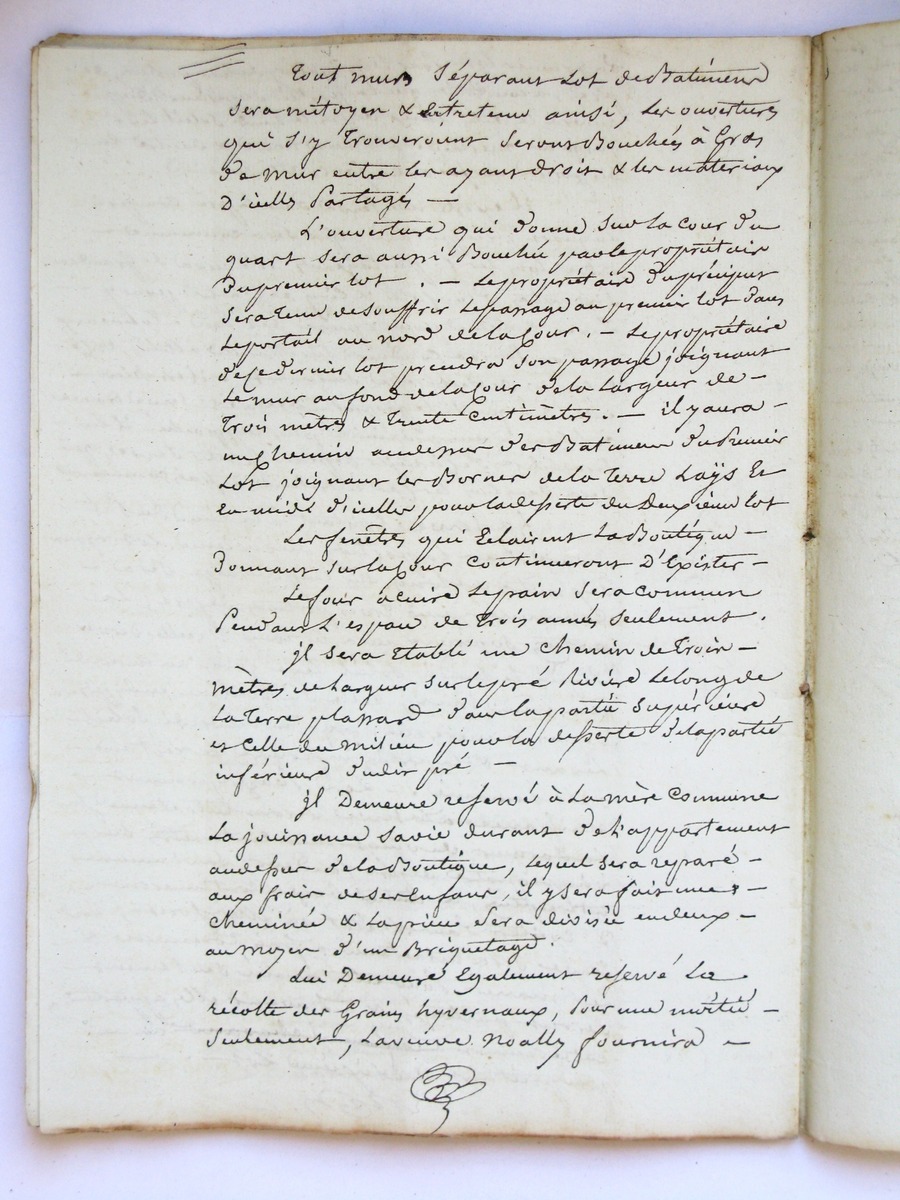 Tout murs séparant lot de Batiment
sera mitoyen & entretenu ainsi, les ouvertures
qui s'y trouveroient seront Bouchées à Gros
de mur entre les ayant droit & les materiaux
D'icelles Partagés —
L'ouverture qui donne sur la cour du
quart sera aussi Bouchée par le propriétaire
du premier lot . — Le propriétaire du préciput
sera tenu de souffrir le passage au premier lot dans
le portail au nord de la Cour . — Le propriétaire
de ce dernier lot prendra son passage joignant
le mur au fond de la Cour de la Largeur de —
Trois mètres & Trente Centimètres . — il y aura —
un Chemin au dessus des Batiment du Premier
Lot joignant les Bornes de la Terre Laÿs Et
En midi d'icelles pour la desserte du Deuxième lot
Les fenêtres qui Eclairent La Boutique —
Donnant sur la Cour continueront D'Exister —
Le four à cuire le pain sera commun
Pendant L'espace de Trois années seulement .
jl sera Etabli une chemin de Trois —
mètres de Largeur sur le pré Rivière Le long de
La Terre plassard dans la partie supérieure
et celle du milieu pour la desserte de la partie
inférieure dudit pré —
jl Demeure reservé à La mère commune
La jouissance sa vie durant de l'appartement
au dessus de la Boutique, lequel sera reparé —
aux frais de ses Enfans, il y sera fait une —
Cheminée & la pièce sera divisée en deux —
au moyen d'un Briquetage .
Lui Demeure Egalement reservé La
récolte des Grains hyvernaux, Pour une moitié —
seulement, La veuve Noally fournira —